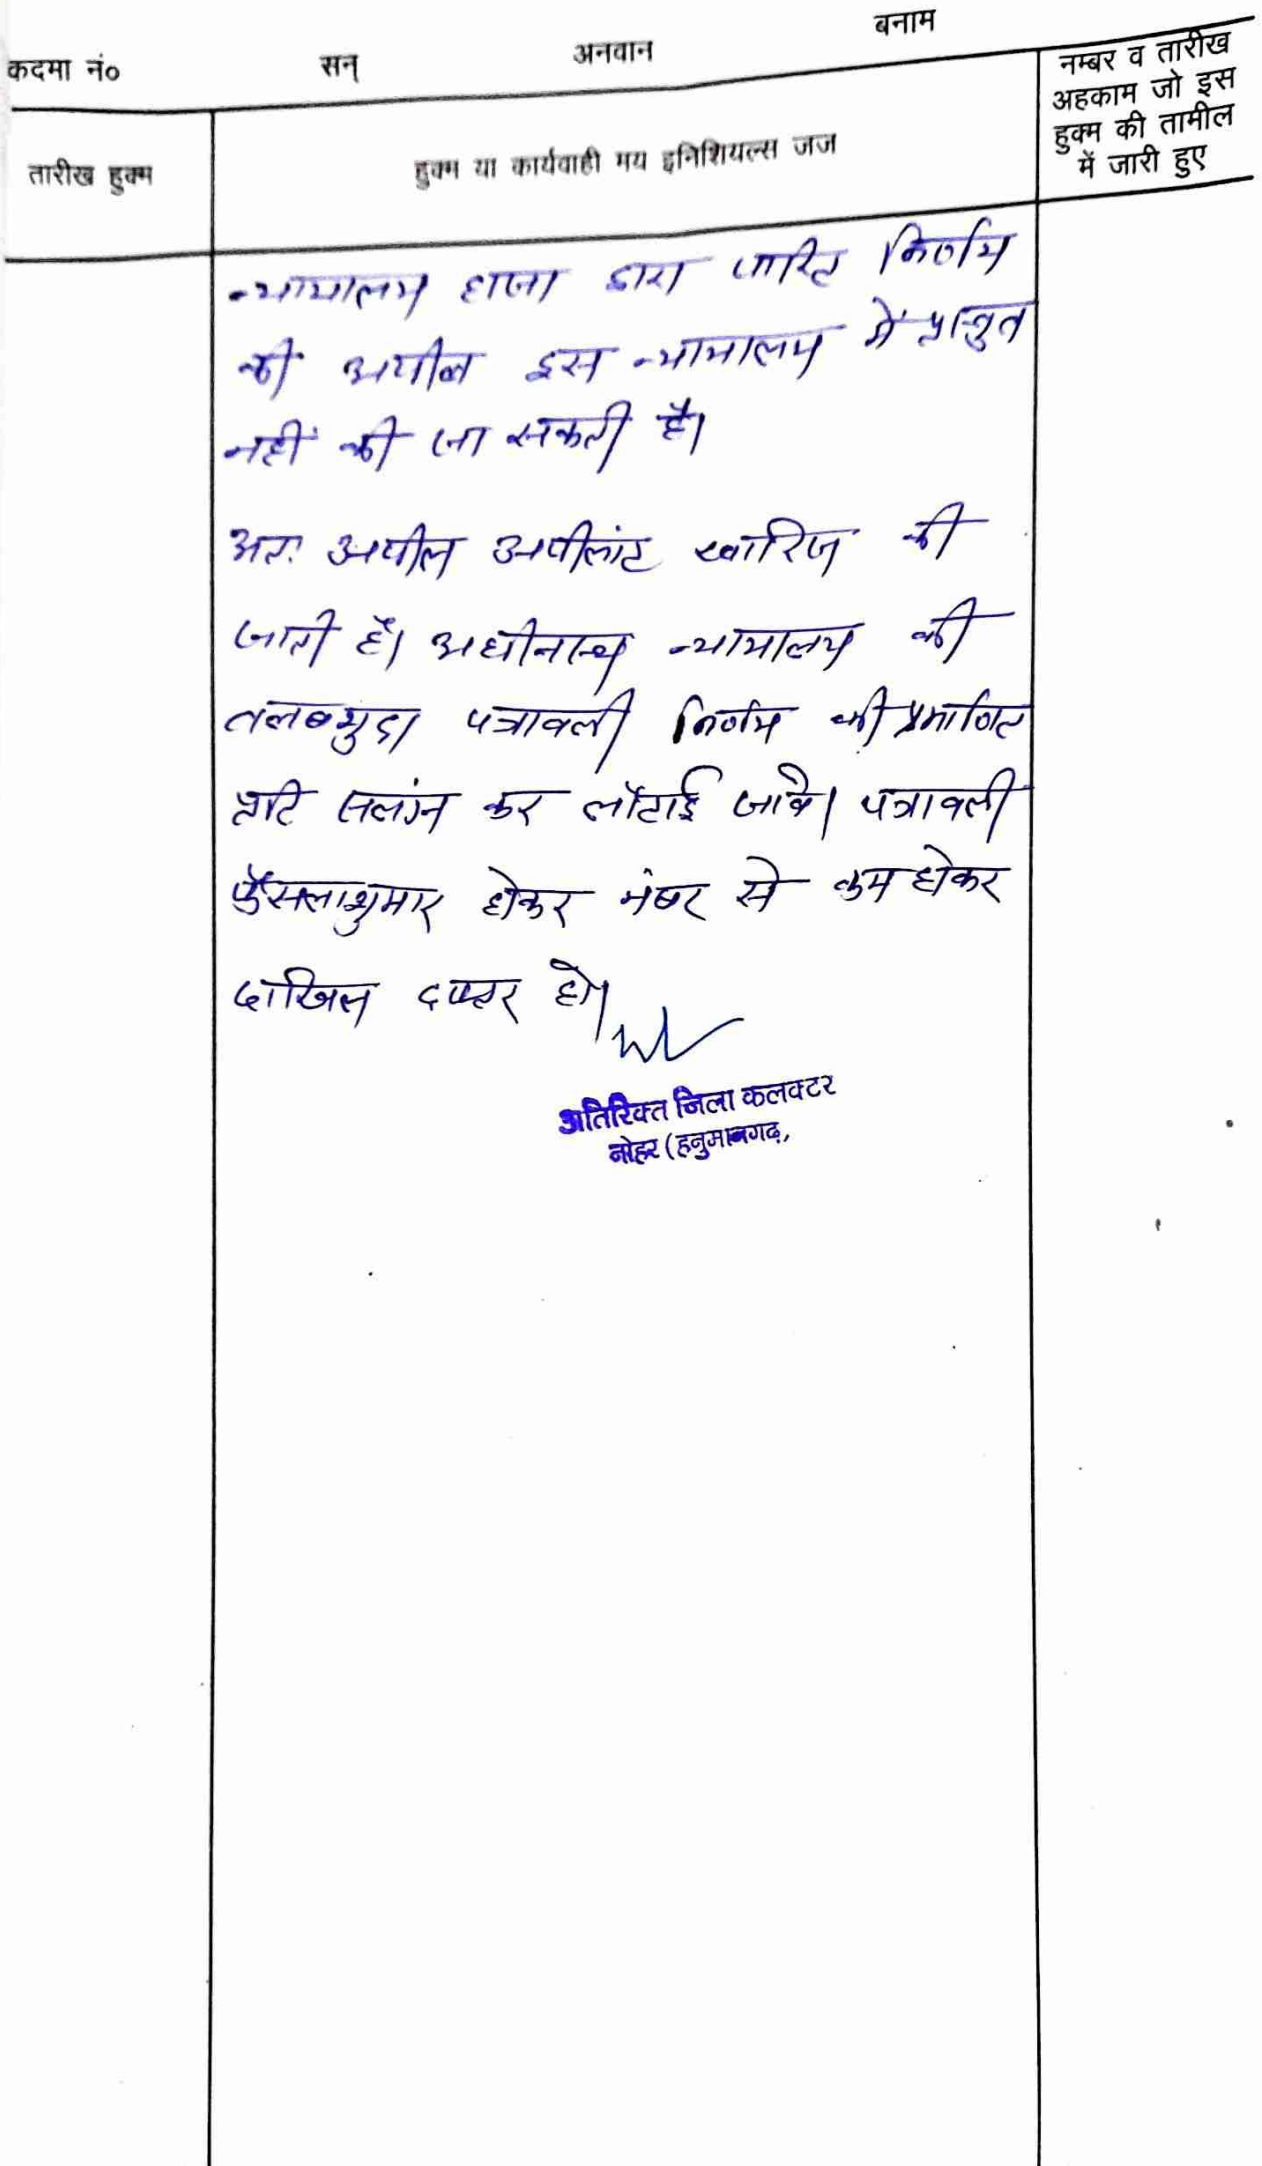 कदमा नं० सन् अनवान बनाम
तारीख हुक्म
हुक्म या कार्यवाही मय इनिशियल्स जज
नम्बर व तारीख
अहकाम जो इस
हुक्म की तामील
में जारी हुए
न्यायालय हाजा द्वारा पारित निर्णय
की अपील इस न्यायालय में प्रस्तुत
नहीं की जा सकती है।
अतः अपील अपीलांट खारिज की
जाती है। अधीनस्थ न्यायालय की
तलबशुदा पत्रावली निर्णय की प्रमाणित
प्रति सलंग्न कर लौटाई जावे। पत्रावली
फैसलाशुमार होकर नंबर से कम होकर
दाखिल दफ्तर हो।
अतिरिक्त जिला कलक्टर
नोहर (हनुमानगढ़,